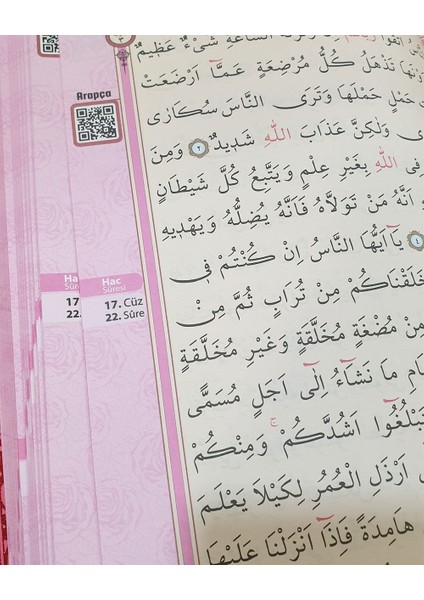 السَّاعَةِ شَيْءٌ عَظِيمٌ
تَذْهَلُ كُلُّ مُرْضِعَةٍ عَمَّٓا اَرْضَعَتْ
حَمْلٍ حَمْلَهَا وَتَرَى النَّاسَ سُكَارٰى
وَلٰكِنَّ عَذَابَ اللّٰهِ شَدِيدٌ ٢ وَمِنَ
فِى اللّٰهِ بِغَيْرِ عِلْمٍ وَيَتَّبِعُ كُلَّ شَيْطَانٍ
اَنَّهُ مَنْ تَوَلَّاهُ فَاَنَّهُ يُضِلُّهُ وَيَهْدِيهِ
٤ يَٓا اَيُّهَا النَّاسُ اِنْ كُنْتُمْ فِى
خَلَقْنَاكُمْ مِنْ تُرَابٍ ثُمَّ مِنْ
مِنْ مُضْغَةٍ مُخَلَّقَةٍ وَغَيْرِ مُخَلَّقَةٍ
مَا نَشَٓاءُ اِلٰٓى اَجَلٍ مُسَمًّى
لِتَبْلُغُٓوا اَشُدَّكُمْ ۚ وَمِنْكُمْ
اَرْذَلِ الْعُمُرِ لِكَيْلَا يَعْلَمَ
هَامِدَةً فَاِذَٓا اَنْزَلْنَا عَلَيْهَا
Arapça
Hac
Sûresi
17. Cüz
22. Sûre
17
22.